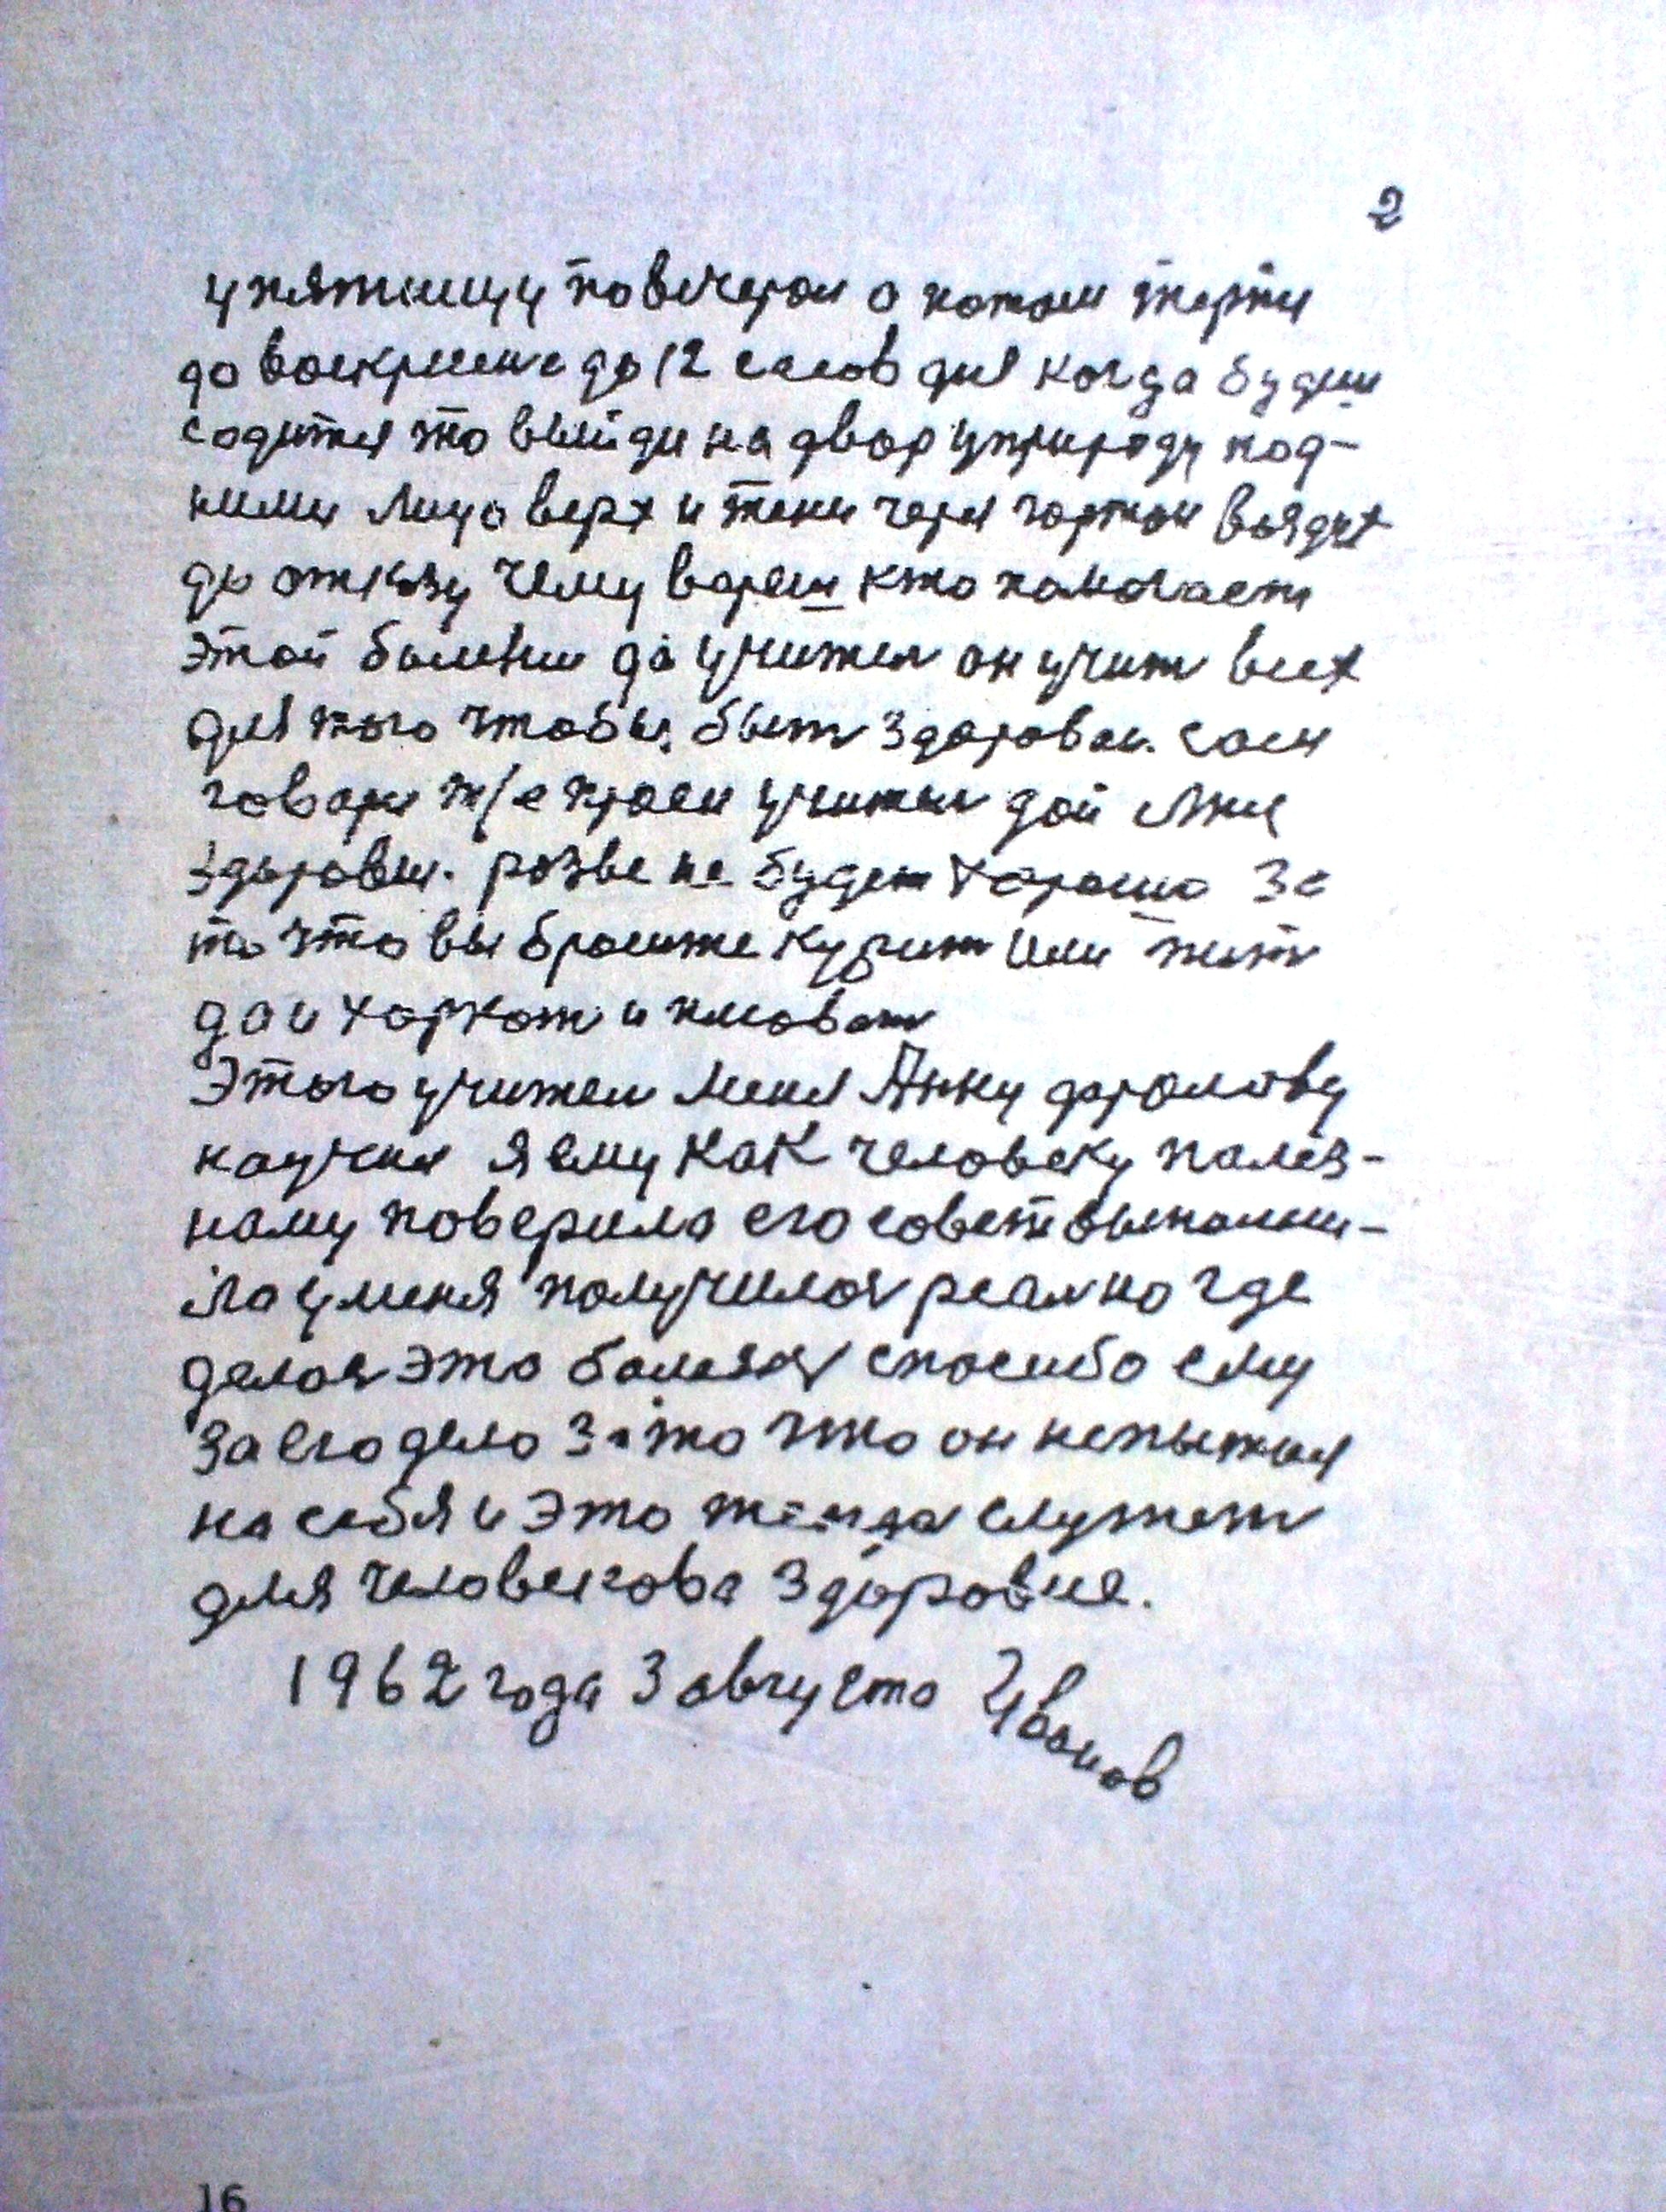 2
у пятницу повечерои а потом терпи
до воскрисене до 12 часов дня когда будеш
содится то выйди на двор у природу под-
ними лицо верх и тени через гортон воздух
до отказу чему вериш кто помогаем
этой болезни да учител он учит всех
для того чтобы быт здоровои. сам
говори тоже проси учител дай мне
здоровея. розве не будет хорошо за
то что вы бросите курит или пит
да и харкат и плеват
Этого учител меня Анну фролову
научил я ему как человеку полез-
наму поверила его совет выполни-
ла у меня получилос реално где
делос это болезня спосибо ему
за его дело за то что он испытал
на себя и это тенда служет
для человекова здоровие.
1962 года 3 августа Иванов
16